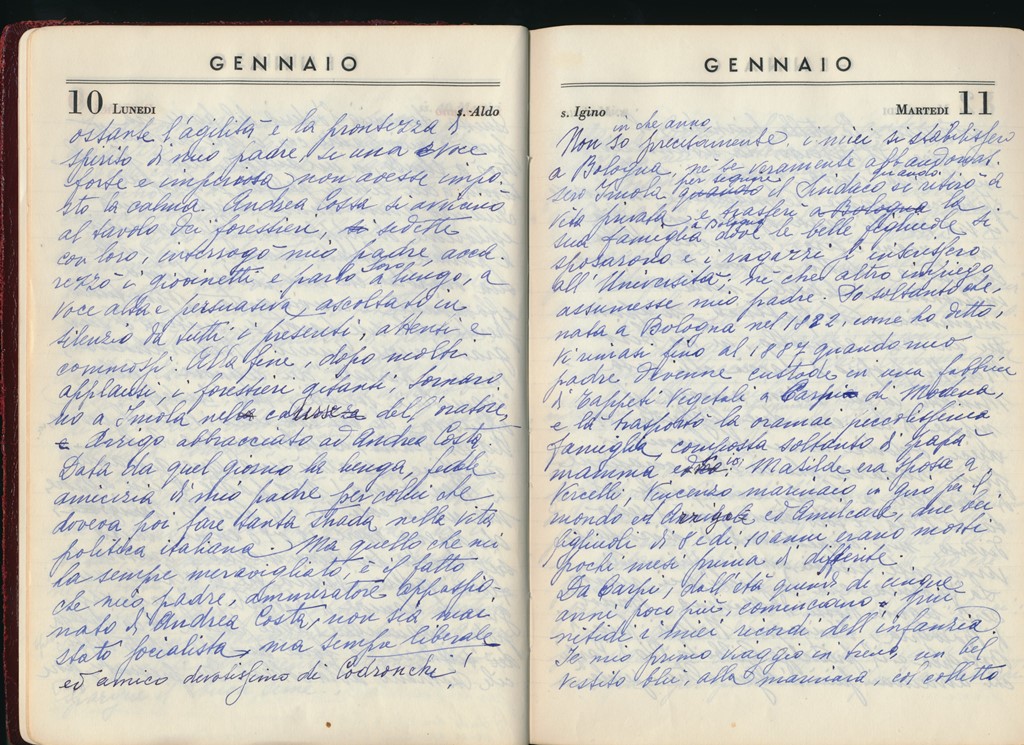 GENNAIO
10 LUNEDI s. Aldo
ostante l'agilità e la prontezza di
spirito di mio padre, se una voce
forte e imperiosa non avesse impo-
sto la calma. Andrea Costa si avvicinò
al tavolo dei forestieri, sedette
con loro, interrogò mio padre, acca-
rezzò i giovinetti e parlò loro a lungo, a
voce alta e persuasiva ascoltato in
silenzio da tutti i presenti, attenti e
commossi. Alla fine, dopo molti
applausi, i forestieri gitanti, tornaro
no a Imola nella carrozza dell'oratore,
e Arrigo abbracciato ad Andrea Costa.
Data da quel giorno la lunga, fedele
amicizia di mio padre per colui che
doveva poi fare tanta strada nella vita
politica italiana. Ma quello che mi
ha sempre meravigliato, è il fatto
che mio padre, ammiratore appassio-
nato di Andrea Costa, non sia mai
stato socialista, ma sempre liberale
ed amico devotissimo di Codronchi!
GENNAIO
s. Igino MARTEDI 11
in che anno,
Non so precisamente i miei si stabilissero
a Bologna, nè se veramente abbandonas-
sero Imola per seguire il Sindaco quando si ritirò a
vita privata e trasferì a Bologna la
sua famiglia a Bologna dove le belle figliuole si
sposarono e i ragazzi s'inscrissero
all'Università, nè che altro impiego
assumesse mio padre. So soltanto che,
nata a Bologna nel 1882, come ho detto,
vi rimasi fino al 1887 quando mio
padre divenne custode in una fabbrica
di Tappeti Vegetali a Carpi di Modena,
e là trasportò la oramai piccolissima
famiglia, composta soltanto di papà
mamma ed io, Matilde era sposa a
Vercelli, Vincenzo marinaio in giro per il
mondo ed Arrigo ed Amilcare, due dei
figliuoli di 8 e di 10 anni erano morti
pochi mesi prima di difterite.
Da Carpi, dall'età quindi di cinque
anni poco più, cominciano i più
netidi i miei ricordi dell'infanzia.
Il mio primo viaggio in treno, un bel
vestito blu, alla marinara, col colletto